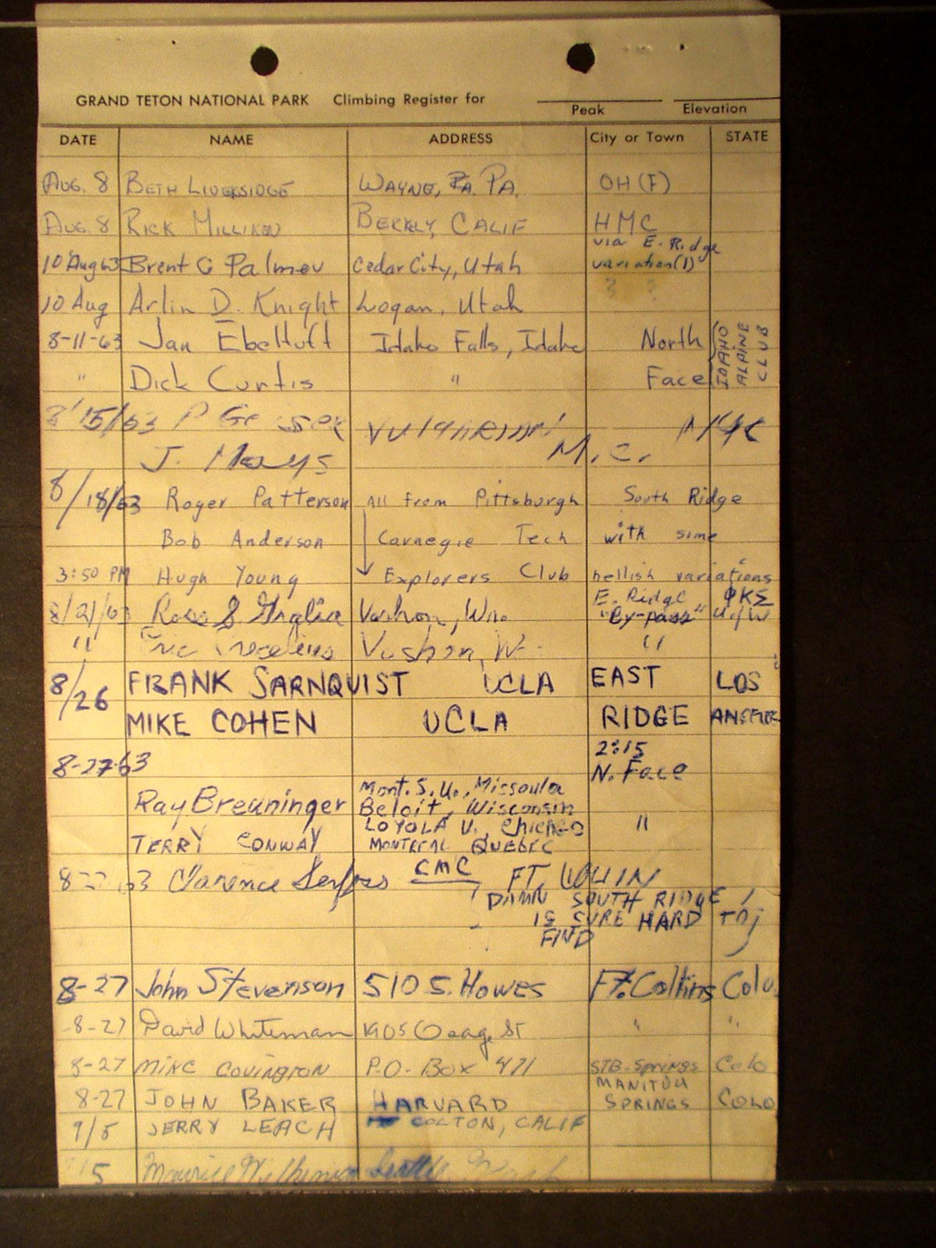 GRAND TETON NATIONAL PARK Climbing Register for
Peak Elevation
DATE NAME ADDRESS City or Town STATE
AUG. 8 BETH LIVERSIDGE WAYNE, PA. PA. OH (F)
AUG. 8 RICK MILLIKEN BERKLY, CALIF HMC
10 Aug 63 Brent C Palmer Cedar City, Utah via E. Ridge variation (1)
10 Aug Arlin D. Knight Logan, Utah
8-11-63 Jan Ebeltoft Idaho Falls, Idaho North IDAHO ALPINE CLUB
" Dick Curtis " Face
8/15/63 P NYC
J. M.C.
8/18/63 Roger Patterson All from Pittsburgh South Ridge
Bob Anderson Carnegie Tech with some
3:50 PM Hugh Young Explorers Club hellish variations
8/21/63 Vashon, Wn. E. Ridge "By-pass" ΦΚΣ U of W
" Eric Vashon, W. "
8/26 FRANK SARNQUIST UCLA EAST LOS
MIKE COHEN UCLA RIDGE ANGELES
8-27-63 2:15 N. Face
Ray Breuninger Mont. S. U., Missoula
Beloit, Wisconsin
TERRY CONWAY LOYOLA U. Chicago "
MONTREAL QUEBEC
63 Clarence CMC FT.
DAMN SOUTH RIDGE
IS SURE HARD TO
FIND
8-27 John Stevenson 510 S. Howes Ft. Collins Colo.
8-27 David Whiteman 1905 Osage St " "
8-27 MIKE COVINGTON P.O. Box 471 STB-Springs Colo
8-27 JOHN BAKER HARVARD MANITOU SPRINGS COLO
9/5 JERRY LEACH COLTON, CALIF
5 Maurice Seattle, Wash